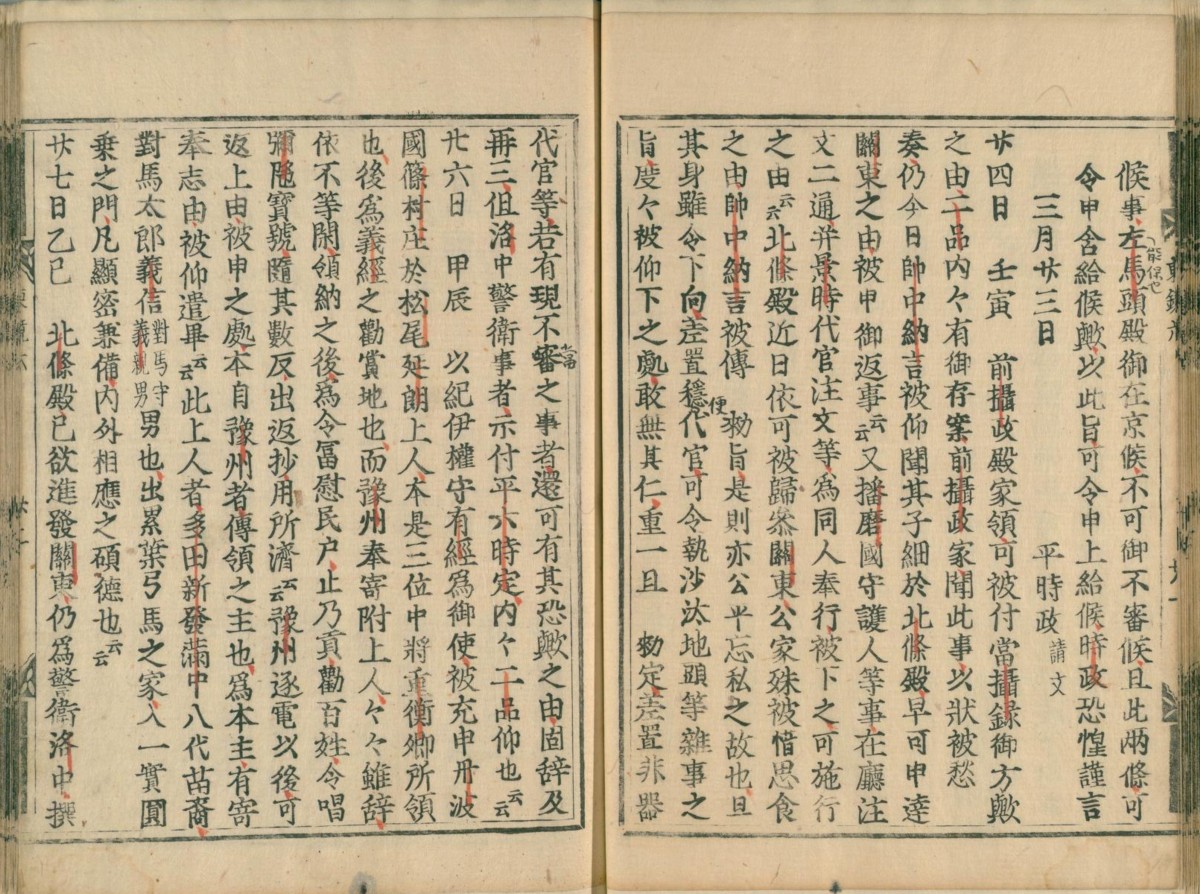 候事、左馬頭殿御在京候、不可御不審候、且此兩條、可
能保也
令申含給候歟、以此旨可令申上給候、時政恐惶謹言
三月廿三日　平時政請文
廿四日　壬寅　前攝政殿家領、可被付當攝籙御方歟
之由、二品内々有御存案、前攝政家聞此事、以狀被愁
奏、仍今日帥中納言被仰聞其子細於北條殿、早可申達
關東之由、被申御返事云云又播磨國守護人等事、在廳注
文二通、并景時代官注文等、為同人奉行被下之、可施行
之由云云北條殿近日依可被歸參關東、公家殊被惜思食
之由、帥中納言被傳　勑旨、是則亦公平忘私之故也、且
其身雖令下向、差置穩便代官、可令執沙汰地頭等雜事之
旨、度々被仰下之處、敢無其仁、重一旦　勑定、差置非器
代官等、若有現不審之事者、還可有其恐歟之由、固辞及
再三、但洛中警衛事者、示付平六時定、内々二品仰也云云
廿六日　甲辰　以紀伊權守有經為御使、被充申丹波
國篠村庄於松尾延朗上人、本是三位中將重衡卿所領
也、後為義經之勸賞地也、而豫州奉寄附上人、々々雖辞、
依不等閑、領納之後、為令冨慰民户、止乃貢、勸百姓、令唱
彌陁寶號、隨其數反、出返抄、用所濟云云豫州逐電以後、可
返上由、被申之處、本自豫州者傳領之主也、為本主、有寄
奉志由、被仰遣畢云云此上人者、多田新發滿中八代苗裔、
對馬太郎義信對馬守義親男男也、出累葉弓馬之家、入一實圓
乗之門、凡顯密兼備、内外相應之碩德也云云
廿七日乙巳　北條殿已欲進發關東、仍為警衛洛中、撰